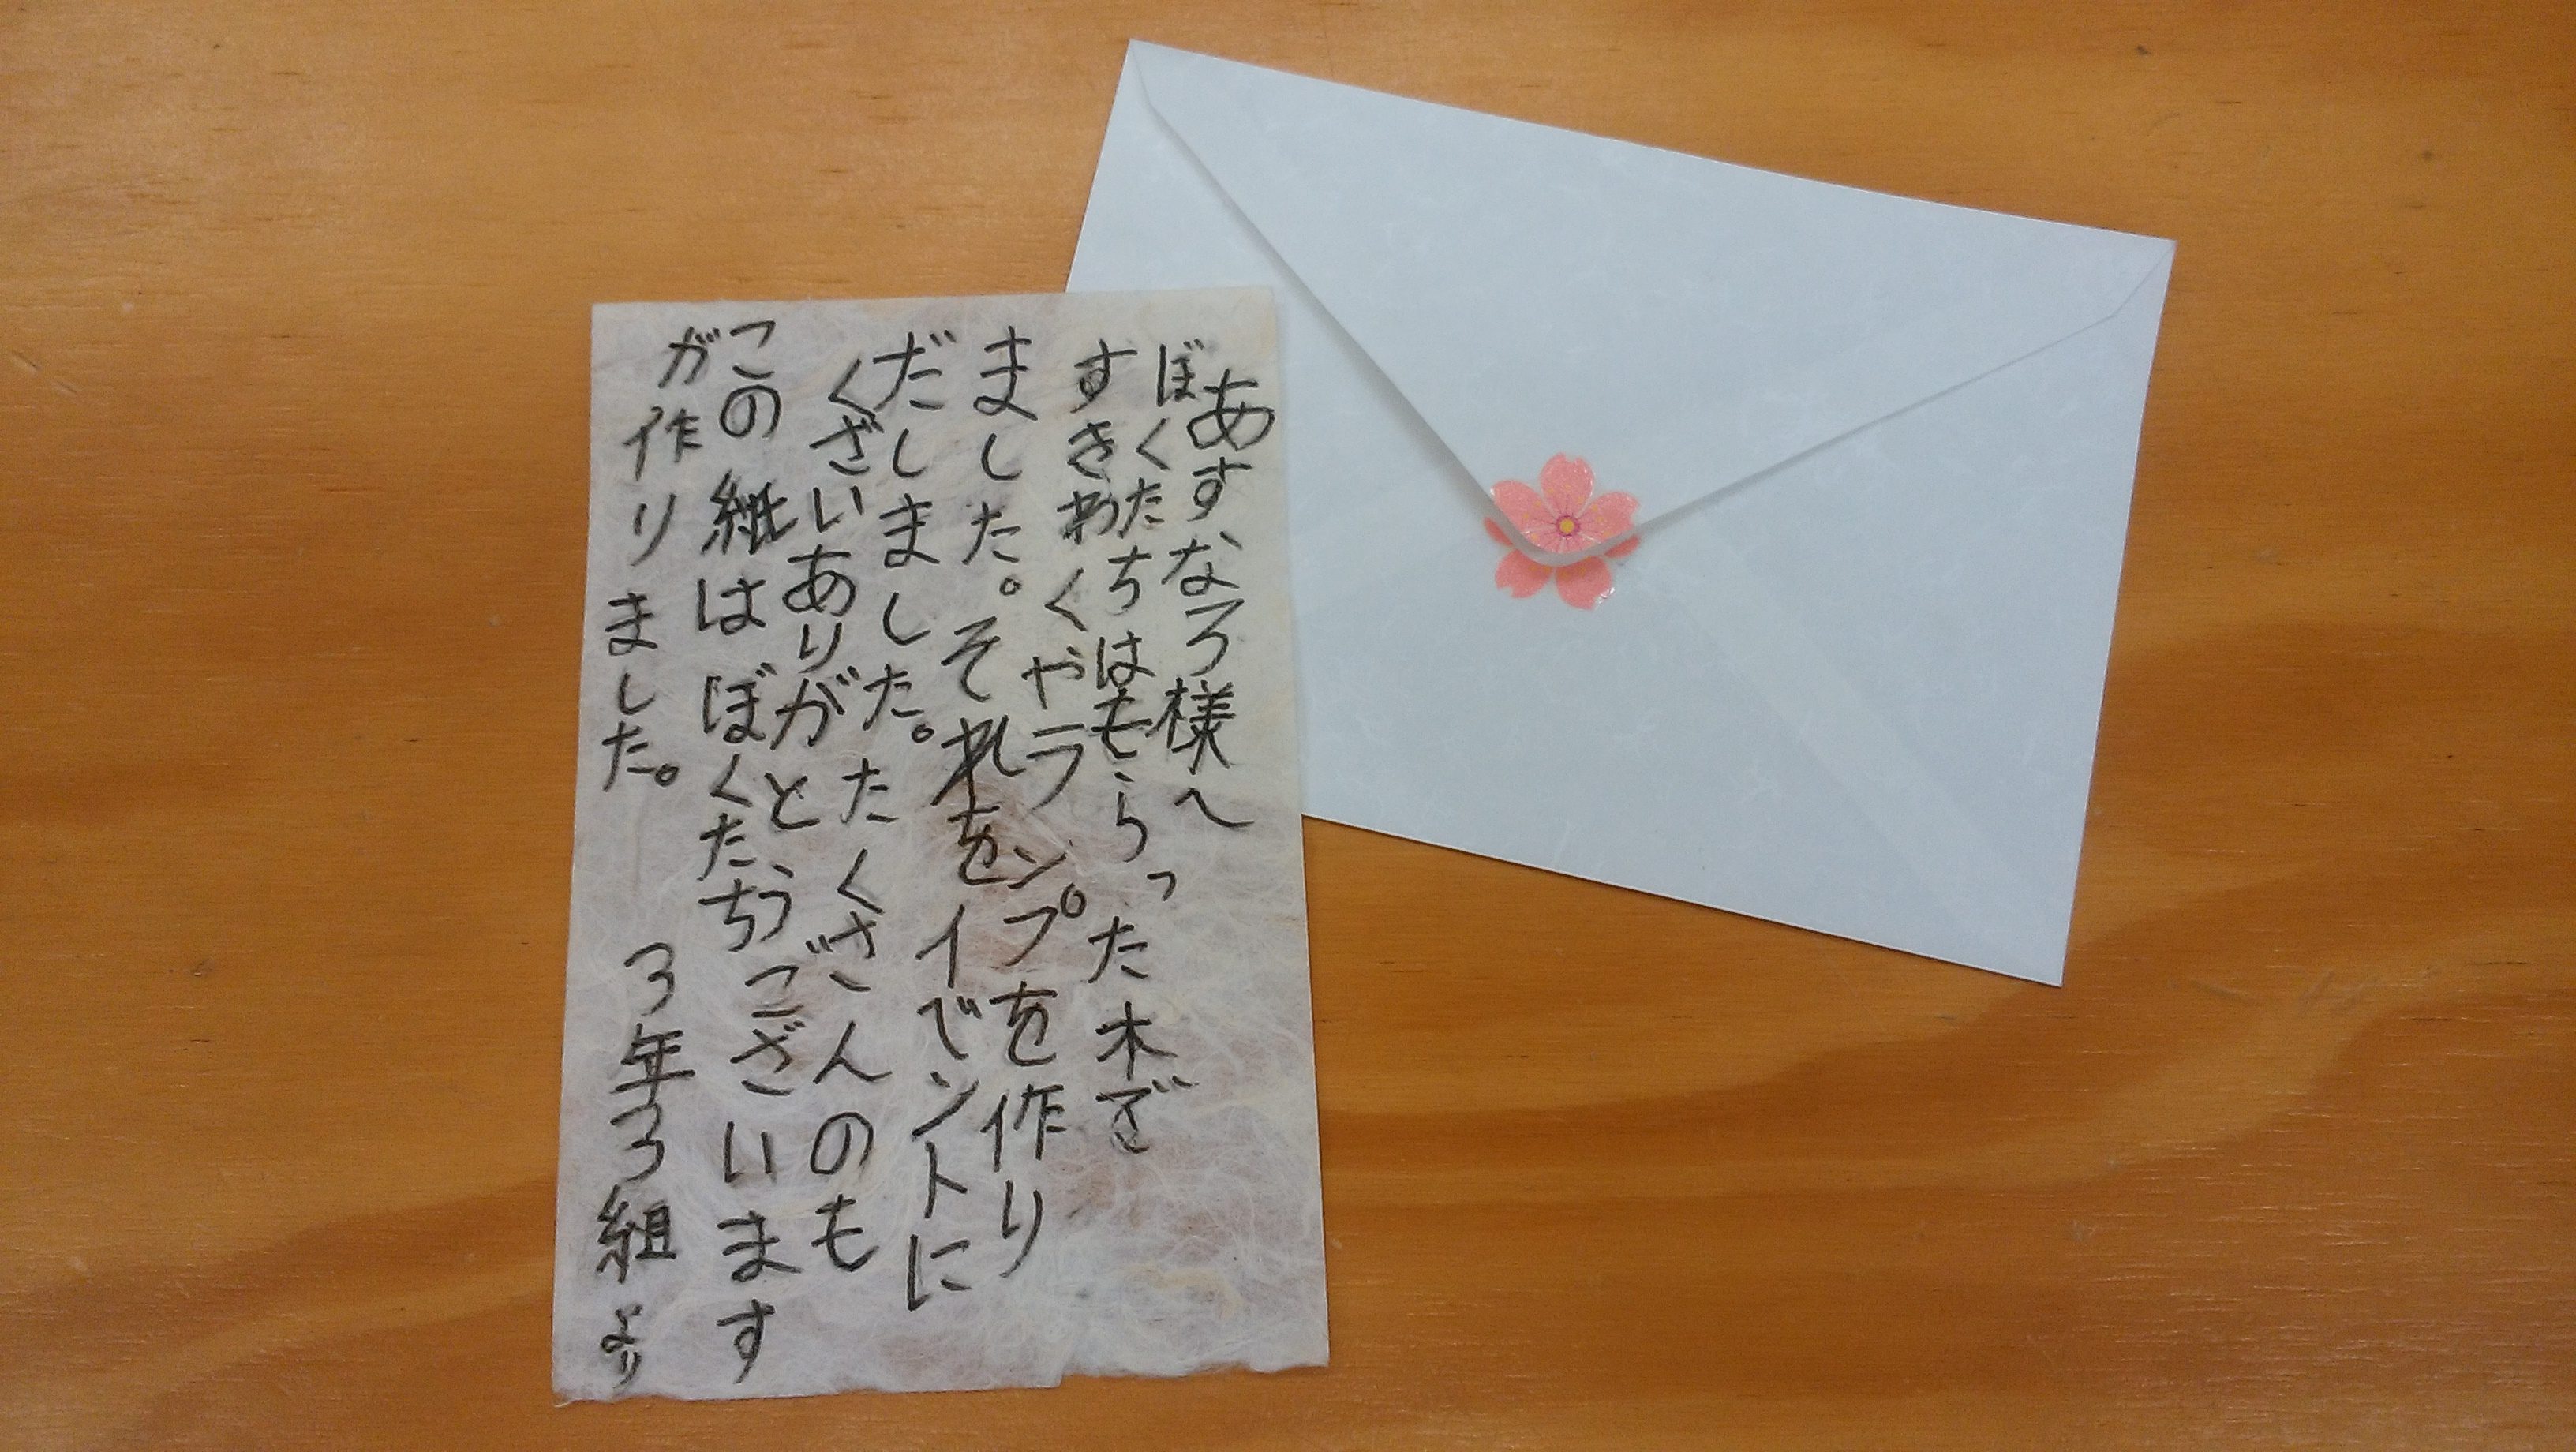 あすなろ様へ
ぼくたちはもらった木で
すきわくやランプを作り
ました。それをイベントに
だしました。たくさんのも
くざいありがとうございます
この紙はぼくたち
が作りました。 3年3組より